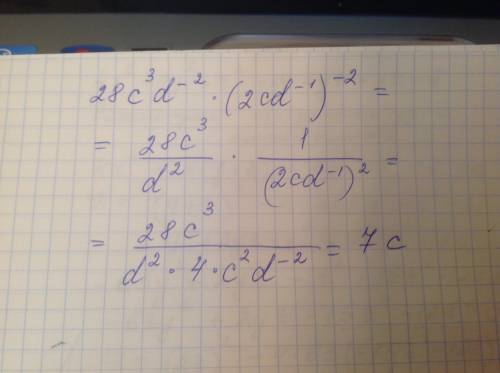 28c³d⁻² · (2cd⁻¹)⁻² =
= 28c³/d² · 1/(2cd⁻¹)² =
= 28c³/(d² · 4 · c²d⁻²) = 7c